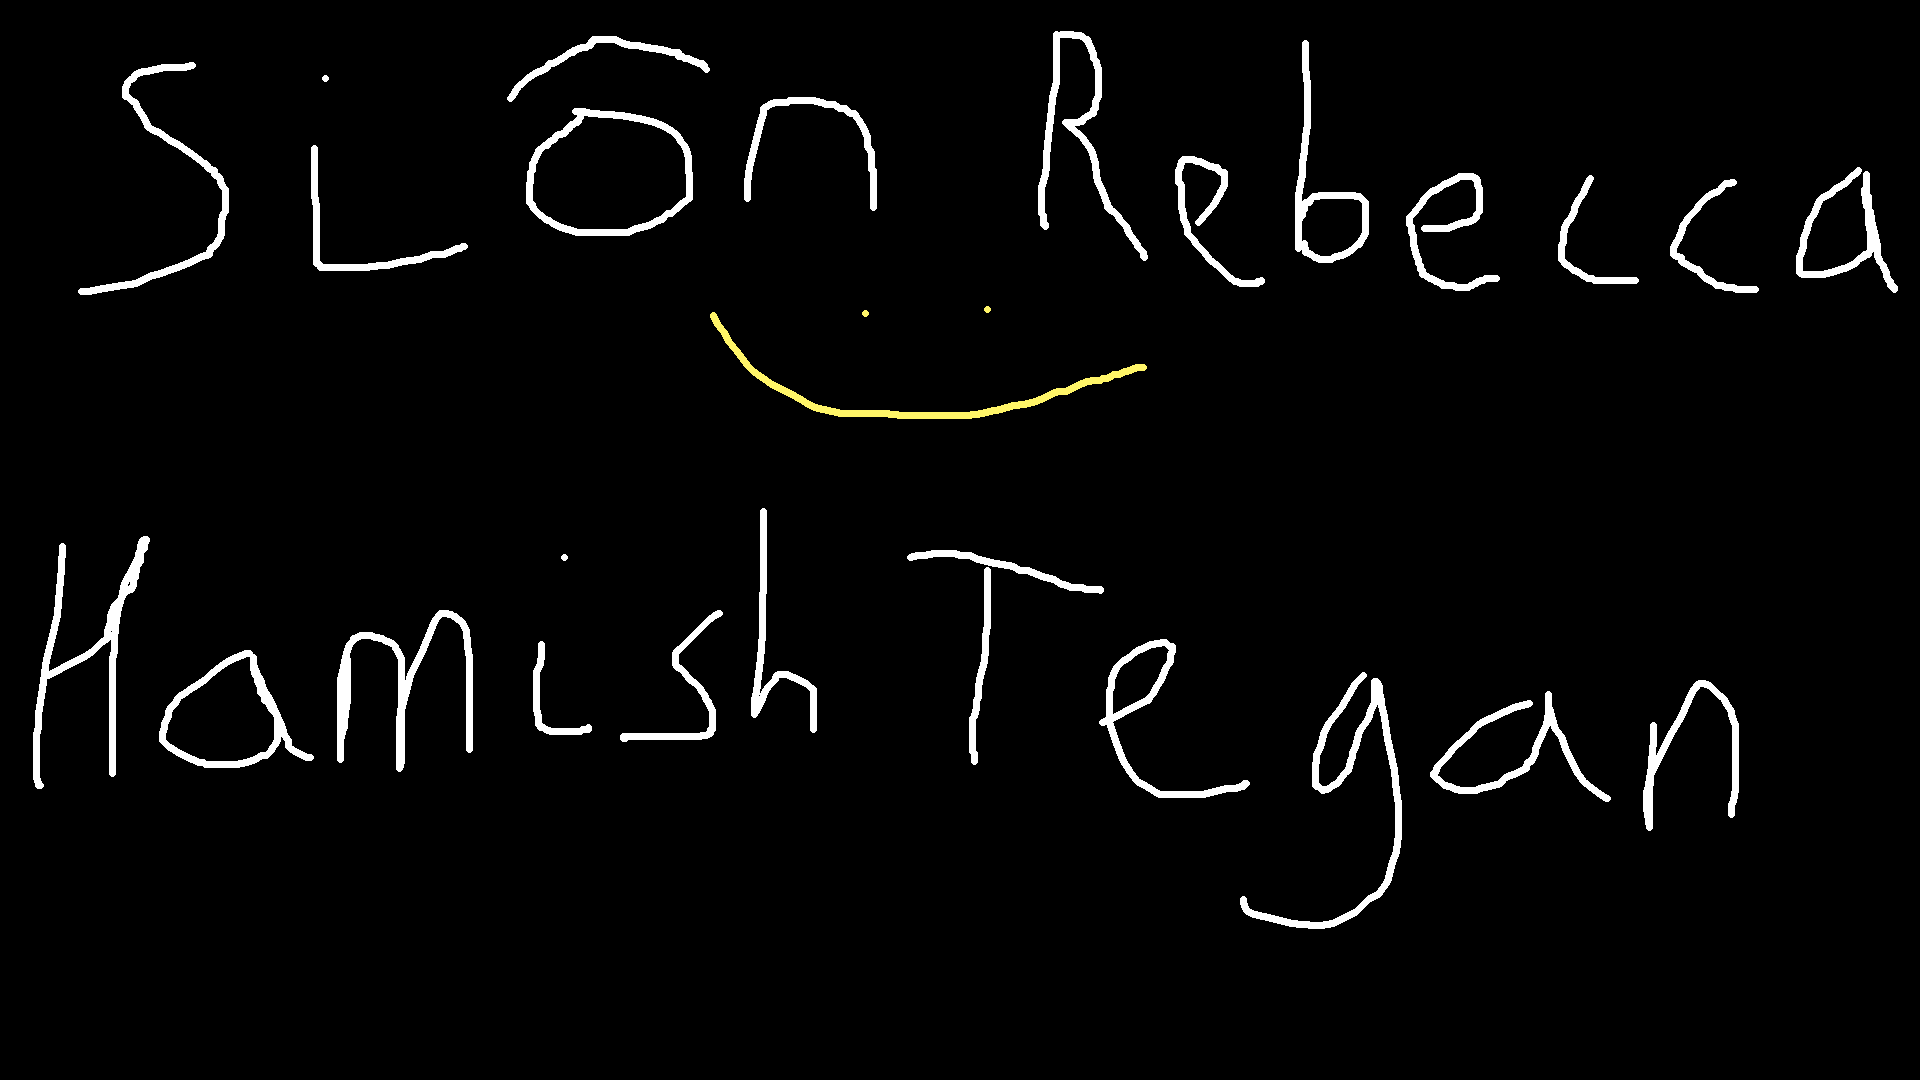 Siôn Rebecca
Hamish Tegan